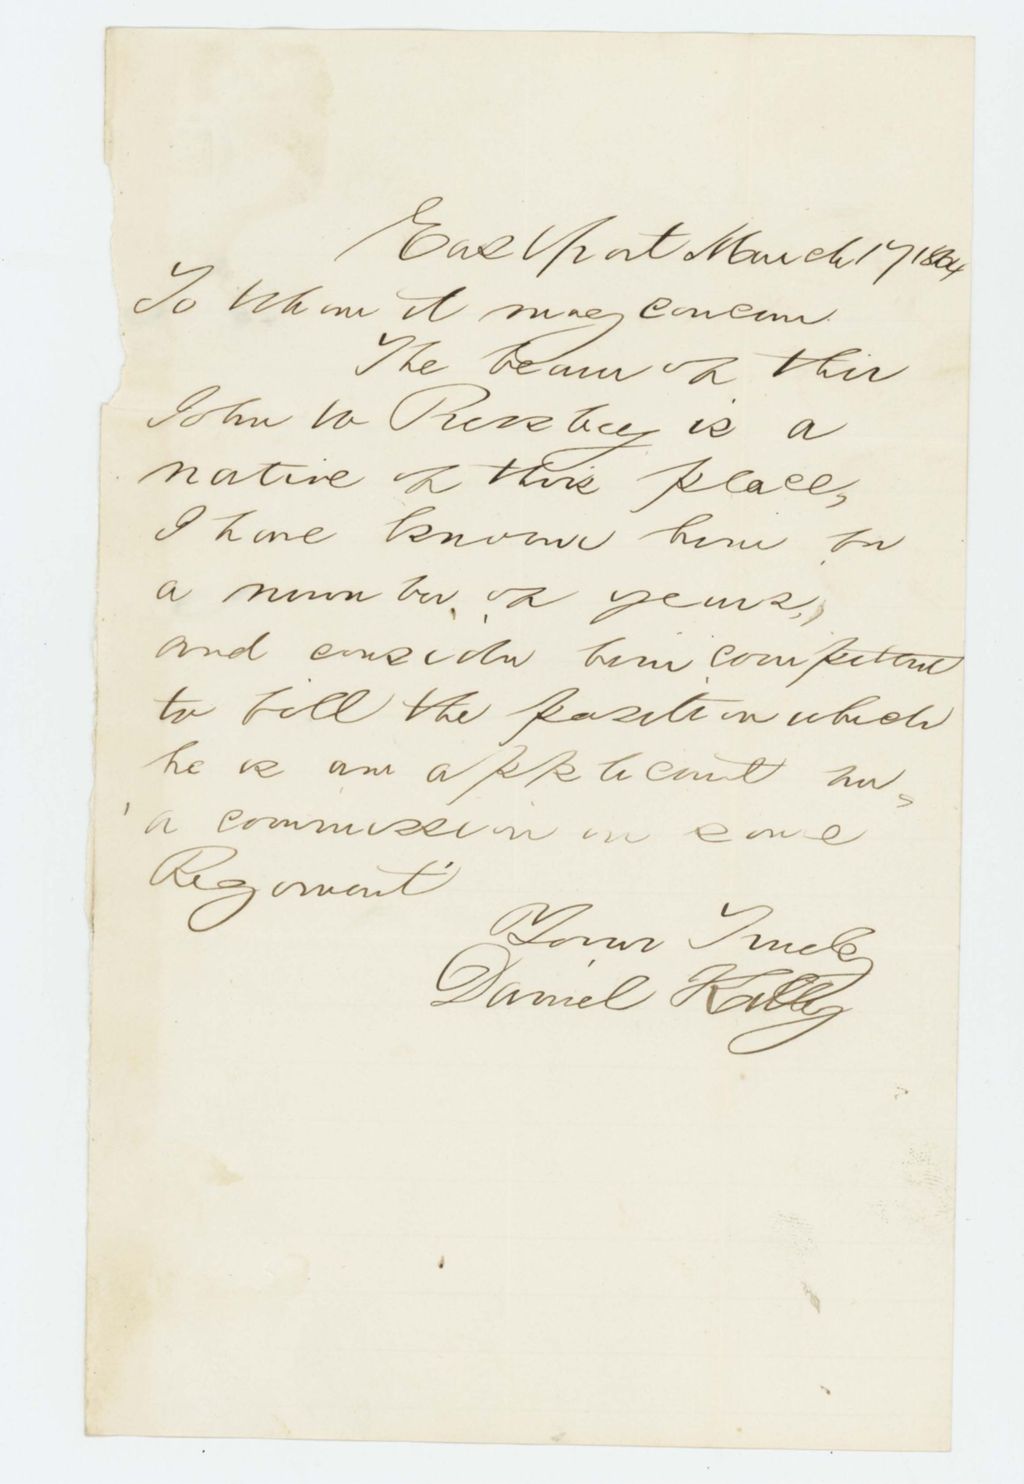 Eastport March 17 1864
To Whom it may concern
The bearer of this
John W is a
native of this place,
I have known him for
a number of years,
and consider him competent
to fill the position which
he is an applicant for,
a commission in some
Regiment
Yours Truly
Daniel